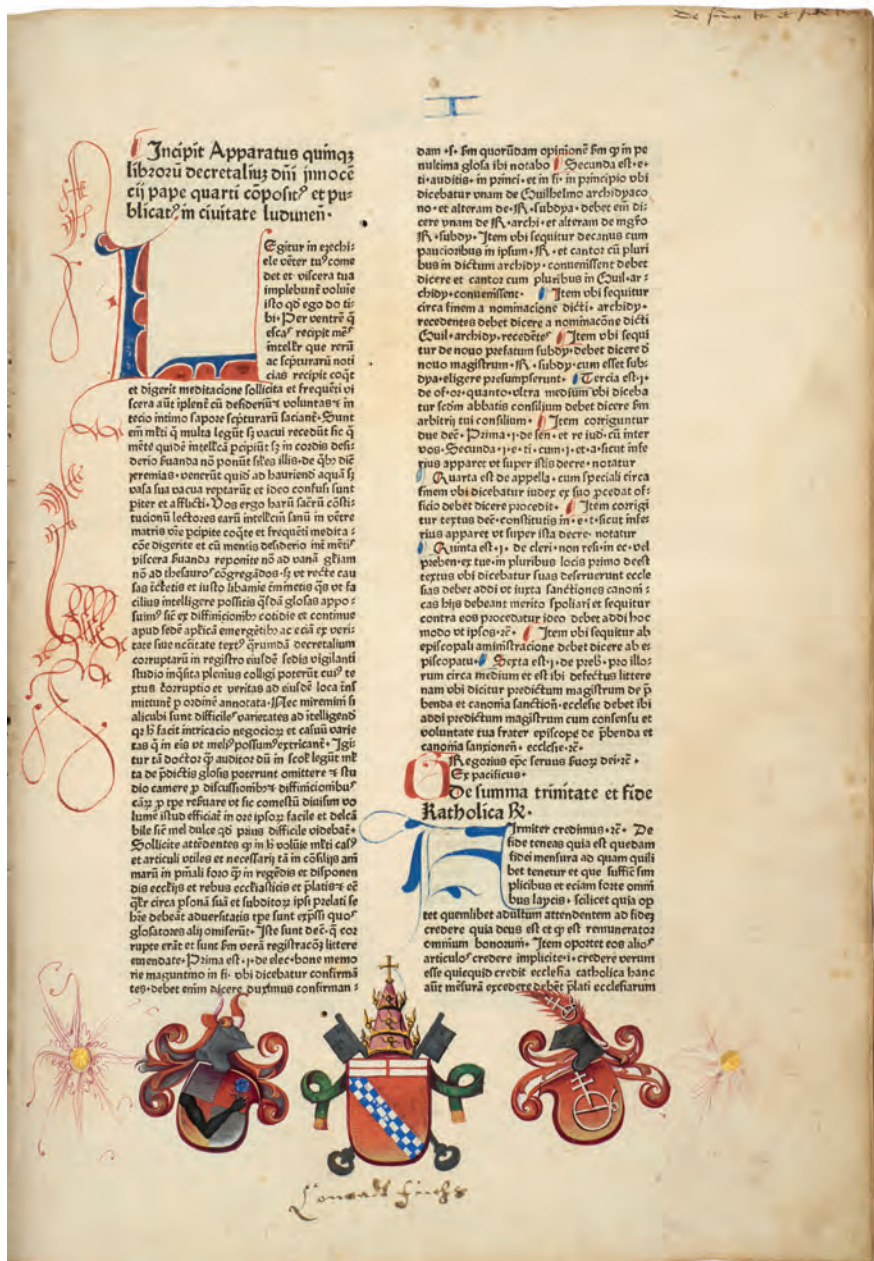 De summa tri et fide
I
Incipit Apparatus quinqꝫ
librorū decretaliuꝫ dñi jnnocē
cij pape quarti cōpositꝰ et pu-
blicatꝰ in ciuitate ludunen·
LEgitur in ezechi:
ele vēter tuꝰ come
det et viscera tua
implebunt̉ volumīe
isto qd̄ ego do ti-
bi· Per ventrē q̄
esca recipit
intellr̄ que rerū
ac sc̄pturarū noti
cias recipit coq̄t
et digerit meditacione sollicita et frequēti vi
scera aūt iplent̉ cū desideriū⁊ voluntas⁊ in
tecio intimo sapore sc̄pturarū saciant̉· Sunt
em̄ ml̄ti q̄ multa legūt sꝫ vacui recedūt sic q̄
mēte quidē intellc̄a p̄cipiūt sꝫ in cordis desi-
derio ẜuanda nō ponūt sil̄es illis· de qb̄ꝰ dic̄
jeremias· venerūt quid ad hauriend aquā sꝫ
vasa sua vacua reptarūt et ideo confusi sunt
piter et afflicti· Vos ergo harū sacrū cōsti-
tucionū lectores earū intellc̄m sanū in vētre
matris vr̄e p̄cipite coq̄te et frequēti medita:
cōe digerite et cū mentis desiderio int̄
viscera ẜuanda reponite nō ad vanā gl̄iam
nō ad thesauros cōgregādos· sꝫ vt recte cau
sas
cilius intelligere possitis q̄sdā glosas appo:
suimꝰ sic̄ ex difficionibꝰ cotidie et continue
apud sedē ap̄licā emergētibꝰ ac eciā ex veri:
tate siue nc̄citate textꝰ q̄rumdā decretalium
corruptarū in registro eiusdē sedis vigilanti
studio inq̄sita plenius colligi poterūt cuiꝰ te
xtus corruptio et veritas ad eiusdē loca īns̄
mittunt̉ p ordinē annotata· Nec miremini si
alicubi sunt difficiles varietates ad ītelligend
qꝛ hͦ facit intricacio negocioꝝ et casuū varie
tas q̄ in eis vt melꝰ possumꝰ extricant̉· Igi:
tur tā doctor q̄ auditor dū in scol̄ legūt ml̄
ta de p̄dictis glosis poterunt omittere ⁊ stu
dio camere p discussionibꝰ⁊ difficionibus
caꝝ p tp̄e reẜuare vt sic comestū diuisim vo
lumē istud efficiat̉ in ore ipsoꝝ facile et delc̄a
bile sic̄ mel dulce qd̄ prius difficile videbat̉·
Sollicite attēdentes ꝙ in hͦ volumīe ml̄ti casꝰ
et articuli vtiles et necessarij tā in cōsilijs ani
marū in p̄niali foro ꝙ in regēdis et disponen
dis eccl̄ijs et rebus eccl̄iasticis et p̄latis⁊ ec̄
q̄lr̄ circa p̄sonā suā et subditoꝝ ipsi prelati se
hr̄e debeāt aduersitatis tp̄e sunt exp̄ssi quos
glosatores alij omiserūt· Iste sunt dec̄· q̄ cor
rupte erāt et sunt ẜm verā registracōꝫ littere
emendate· Prima est· j· de elec· bone memo
rie maguntino in fi· vbi dicebatur confirmā
tes· debet enim dicere duximus confirman:
dam ·s· ẜm quorūdam opinionē ẜm ꝙ in pe
nultima glosa ibi notabo Secunda est· e·
ti· auditis· in princi· et in fi· in principio vbi
dicebatur vnam de Guilhelmo archidyaco
no· et alteram de·R·subdya· debet em̄ di-
cere vnam de R·archi· et alteram de mgr̄o
R·subdy· Item vbi sequitur decanus cum
paucioribus in ipsum·R· et cantor cū pluri
bus in dictum archidy· conuenissent debet
dicere et cantor cum pluribus in Guil·ar:
chidy·conuenissent· Item vbi sequitur
circa finem a nominacione dicti· archidy·
recedentes debet dicere a nominacōne dicti
Guil·archidy·recedētes Item vbi sequi
tur de nouo prefatum subdy·debet dicere d̄
nouo magistrum·R·subdy·cum esset sub:
dya·eligere presumpserunt· Tercia est·j·
de of·or·quanto·vltra medium vbi diceba
tur scd̄m abbatis consilium debet dicere ẜm
arbitrij tui consilium· Item corriguntur
due dec̄· Prima·j·de sen·et re iud·cū inter
vos· Secunda·j·e·ti·cum·j·et·a·sicut infe
rius apparet vt super istis decre·notatur
Quarta est de appella·cum speciali circa
finem vbi dicebatur iudex ex suo p̄cedat of:
ficio debet dicere procedit· Item corrigi
tur textus dec̄·constitutis in·e·t·sicut infe:
rius apparet vt super ista decre·notatur
Quinta est·j·de cleri·non resi·in ec·vel
preben·ex tue·in pluribus locis primo deest
textus vbi dicebatur suas deseruerunt eccle
sias debet addi vt iuxta sanctiones canoni:
cas hijs debeant merito spoliari et sequitur
contra eos procedatur ideo debet addi hoc
modo vt ipsos·rc̄· Item vbi sequitur ab
episcopali aministracione debet dicere ab e:
piscopatu· Sexta est·j·de preb·pro illo:
rum circa medium et est ibi defectus littere
nam vbi dicitur predictum magistrum de p̄
benda et canonia sanction·ecclesie debet ibi
addi predictum magistrum cum consensu et
voluntate tua frater episcope de p̄benda et
canonia sanxionem·ecclesie·rc̄·
GRegorius ep̄c seruus ẜuoꝝ dei·rc̄·
Ex pacificus·
De summa trinitate et fide
Katholica R·
FIrmiter credimus·rc̄· De
fide teneas quia est quedam
fidei mensura ad quam quili
bet tenetur et que suffic̄ sim
plicibus et eciam forte omni
bus laycis· scilicet quia op
tet quemlibet adultum attendentem ad fideꝫ
credere quia deus est et ꝙ est remunerator
omnium bonorum· Item oportet eos alios
articulos credere implicite·i·credere verum
esse quicquid credit ecclesia catholica hanc
aūt mēsurā excedere debēt p̄lati ecclesiarum
Conradt Fuchs